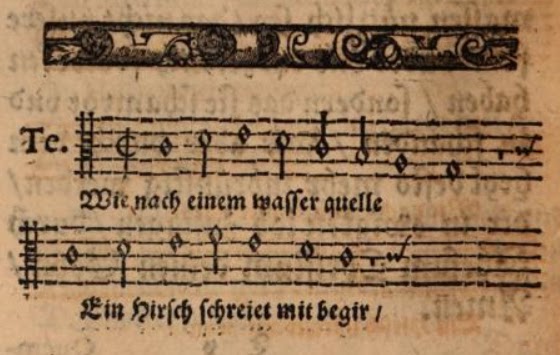 Te.
Wie nach einem wasser quelle
Ein Hirsch schreiet mit begir /